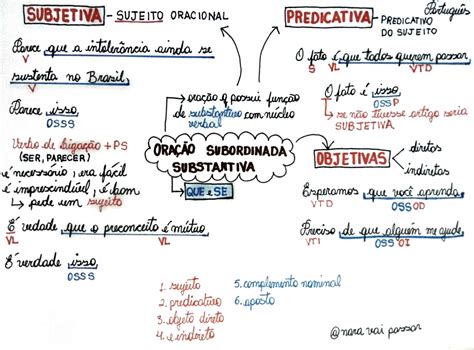 Português
SUBJETIVA - SUJEITO ORACIONAL
Parece que a intolerância ainda se
V
sustenta no Brasil,
Parece isso,
OSSS
Verbo de ligação + PS
(SER, PARECER)
é necessário, era fácil
é imprescindível, é bom
↳ pede um sujeito
É verdade que o preconceito é mútuo
VL VL
É verdade isso,
OSSS
PREDICATIVA - PREDICATIVO
DO SUJEITO
O fato é que todos querem passar,
S VL VTD
O fato é isso,
OSSP
↳ se não tivesse artigo seria
SUBJETIVA
oração q possui função
de substantivo com núcleo
verbal
ORAÇÃO SUBORDINADA
SUBSTANTIVA
QUE e SE
OBJETIVAS
diretos
indiretos
Esperamos que você aprenda,
VTD OSSOD
Preciso de que alguém me ajude,
VTI OSSOI
1. sujeito
2. predicativo
3. objeto direto
4. e indireto
5. complemento nominal
6. aposto
@nara vai passar